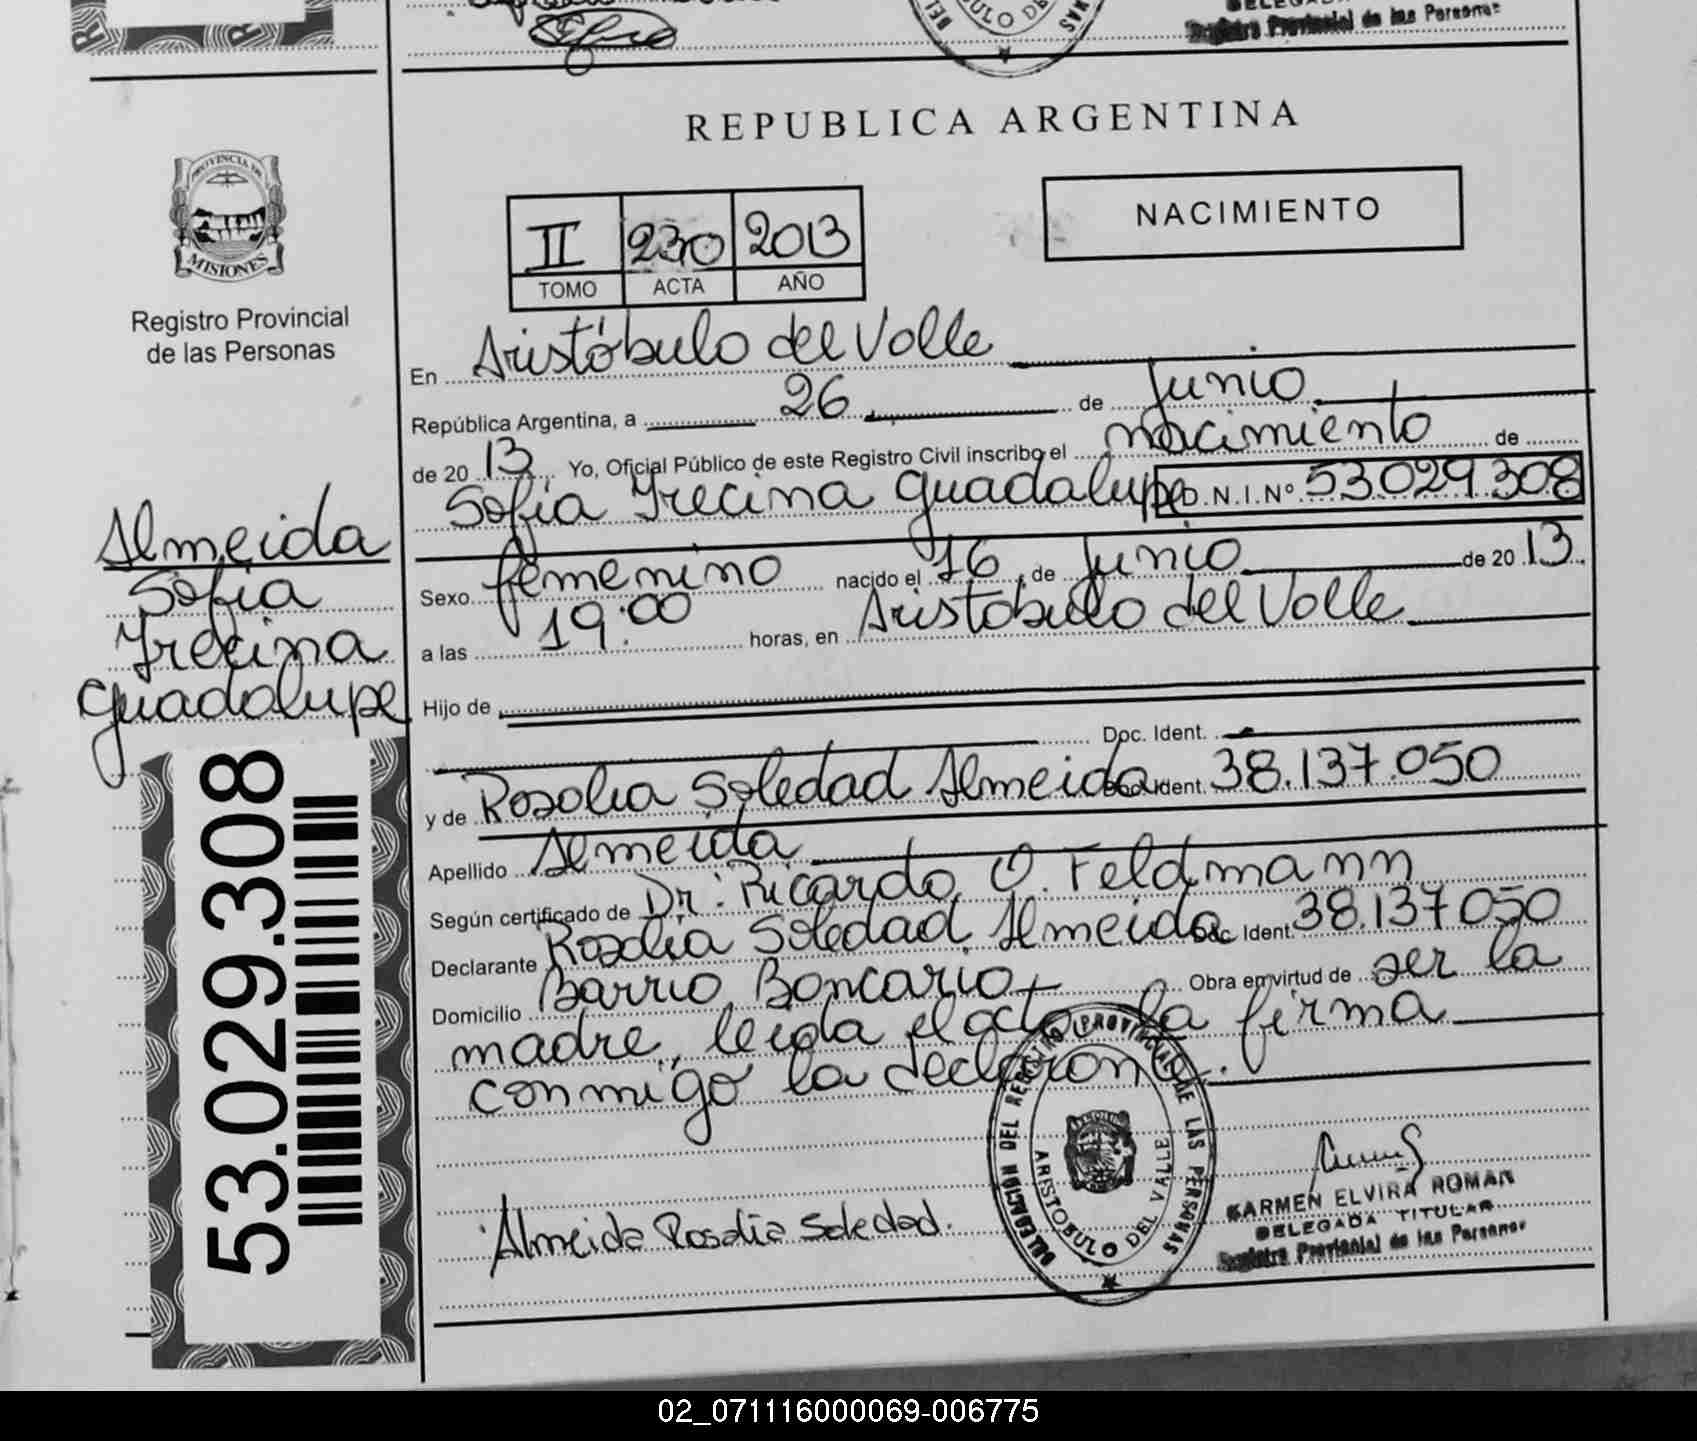 Registro Provincial de las Personas
REPUBLICA ARGENTINA
PROVINCIA DE
MISIONES
Registro Provincial
de las Personas
II 230 2013
TOMO ACTA AÑO
NACIMIENTO
En Aristóbulo del Valle
República Argentina, a 26 de Junio
de 2013 Yo, Oficial Público de este Registro Civil inscribo el nacimiento de
Sofia Irecina Guadalupe D.N.I.Nº 53.029.308
Sexo femenino nacido el 16 de Junio de 2013
a las 19:00 horas, en Aristobulo del Valle
Hijo de
Doc. Ident.
y de Rosalia Soledad Almeida Doc. Ident. 38.137.050
Apellido Almeida
Según certificado de Dr: Ricardo O. Feldmann
Declarante Rosalia Soledad Almeida Doc. Ident. 38.137050
Domicilio Barrio Boncario Obra en virtud de ser la
madre, leida el acta la firma
conmigo la declarante.
Almeida
Sofia
Irecina
Guadalupe
53.029.308
Almeida Rosalia Soledad.
DELEGACION DEL REGISTRO PROVINCIAL DE LAS PERSONAS
ARISTOBULO DEL VALLE
KARMEN ELVIRA ROMAN
DELEGADA TITULAR
Registro Provincial de las Personas
02_071116000069-006775